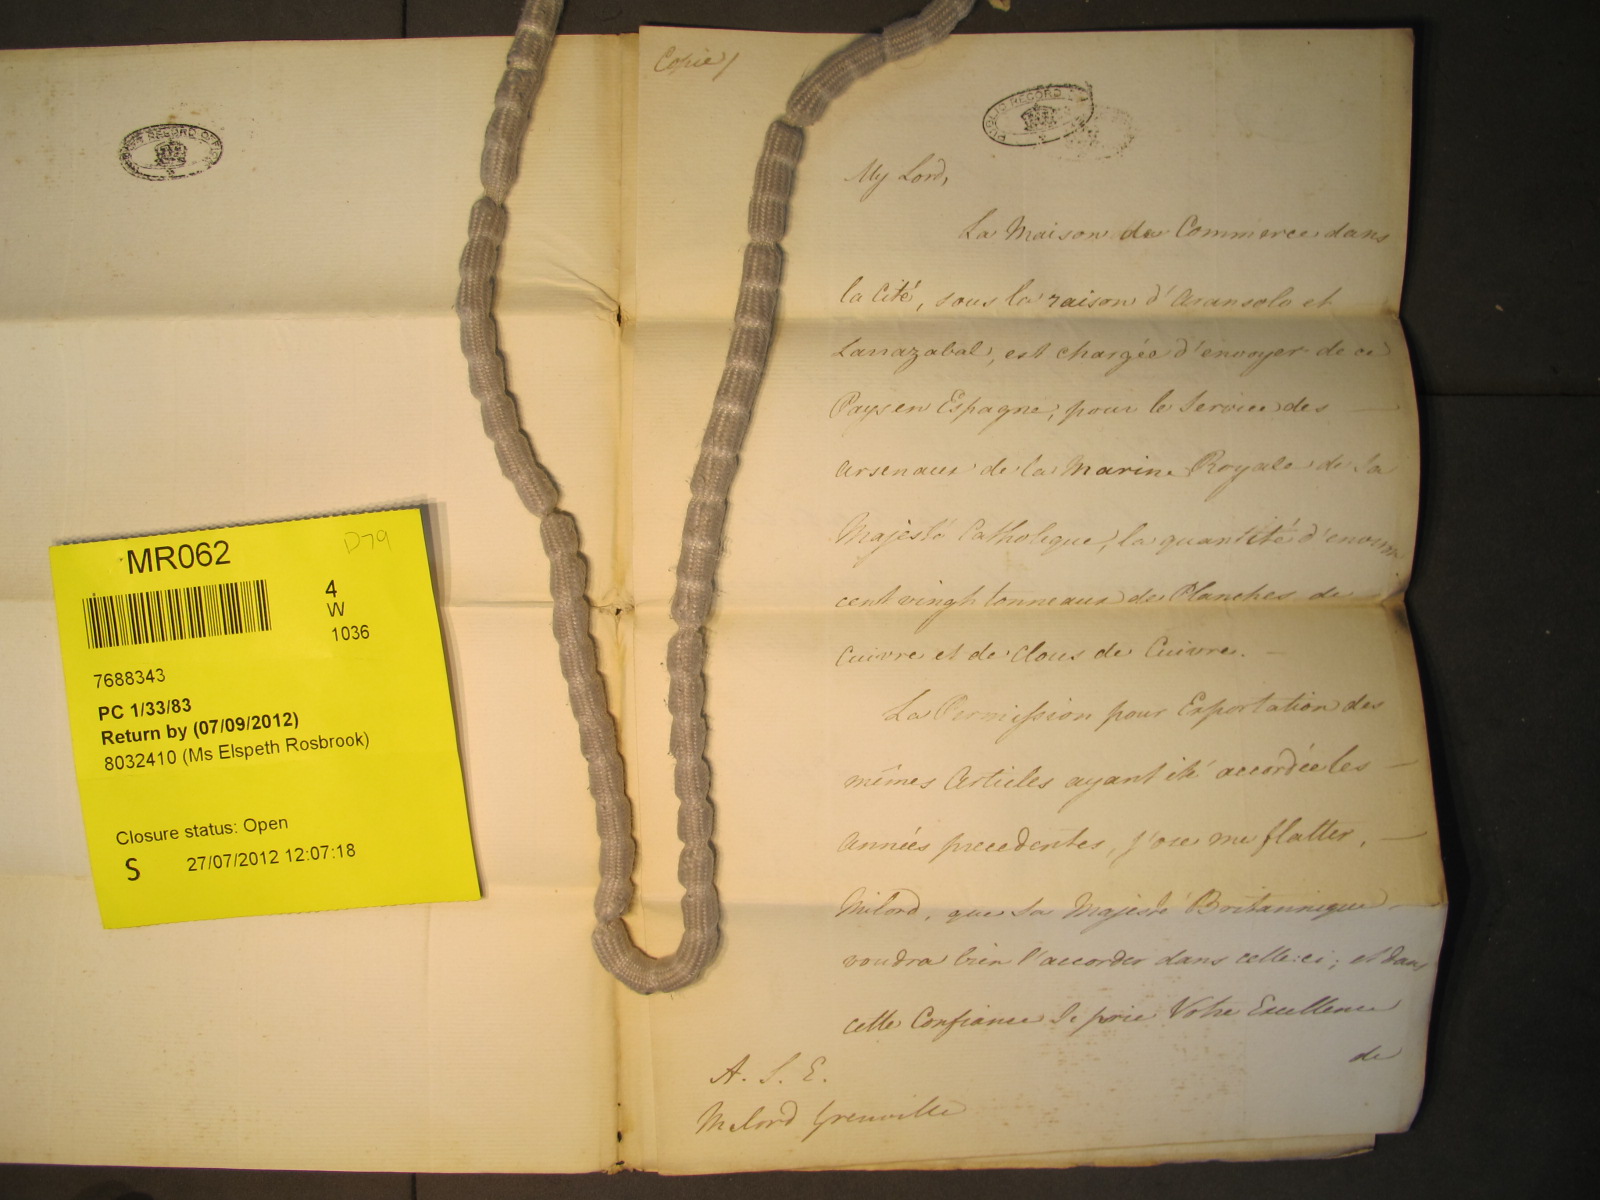 Copie/
PUBLIC RECORD OFFICE
PUBLIC RECORD
My Lord,
La Maison de Commerce dans
la Cité, sous la raison d'Aransolo et
Larrazabal, est chargée d'envoyer de ce
Pays en Espagne, pour le Service des —
arsenaux de la Marine Royale de Sa
Majesté Catholique, la quantité d'environ
cent vingt tonneaux de Planches de
Cuivre et de Clous de Cuivre. —
La Permission pour Exportation des
mêmes Articles ayant été accordée les —
Années precedentes, j'ose me flatter, —
Milord, que Sa Majesté Britannique
voudra bien l'accorder dans celle-ci; et dans
cette Confiance Je prie Votre Excellence
de
A. S. E.
Milord Grenville
MR062
D79
4
W
1036
7688343
PC 1/33/83
Return by (07/09/2012)
8032410 (Ms Elspeth Rosbrook)
Closure status: Open
S 27/07/2012 12:07:18